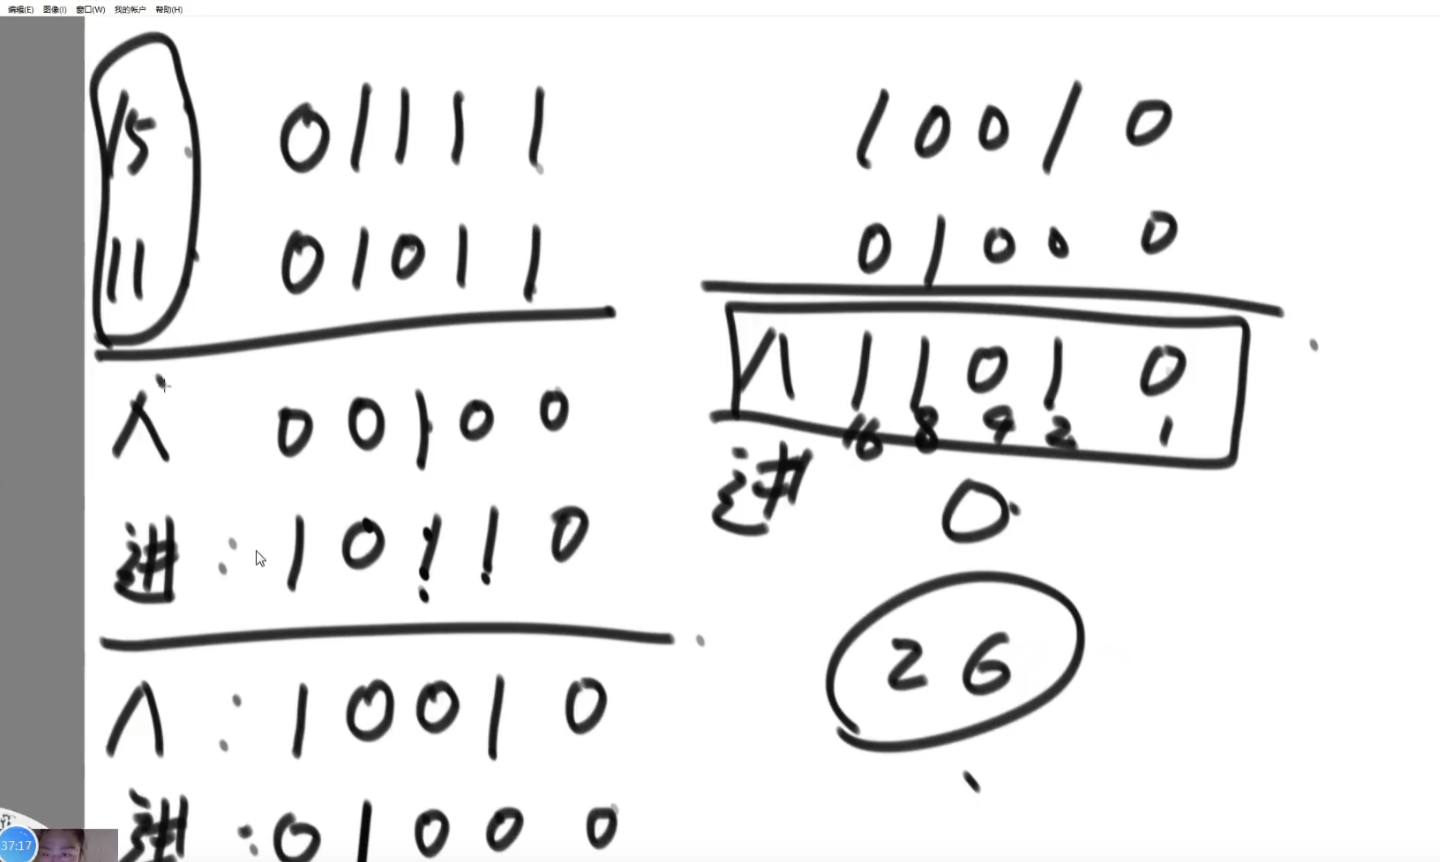 编辑(E) 图像(I) 窗口(W) 我的帐户 帮助(H)
15 01111
11 01011
∧ 00100
进 : 10110
∧ : 10010
进 : 01000
10010
01000
∧ 11010
16 8 4 2 1
进 0
26
37:17